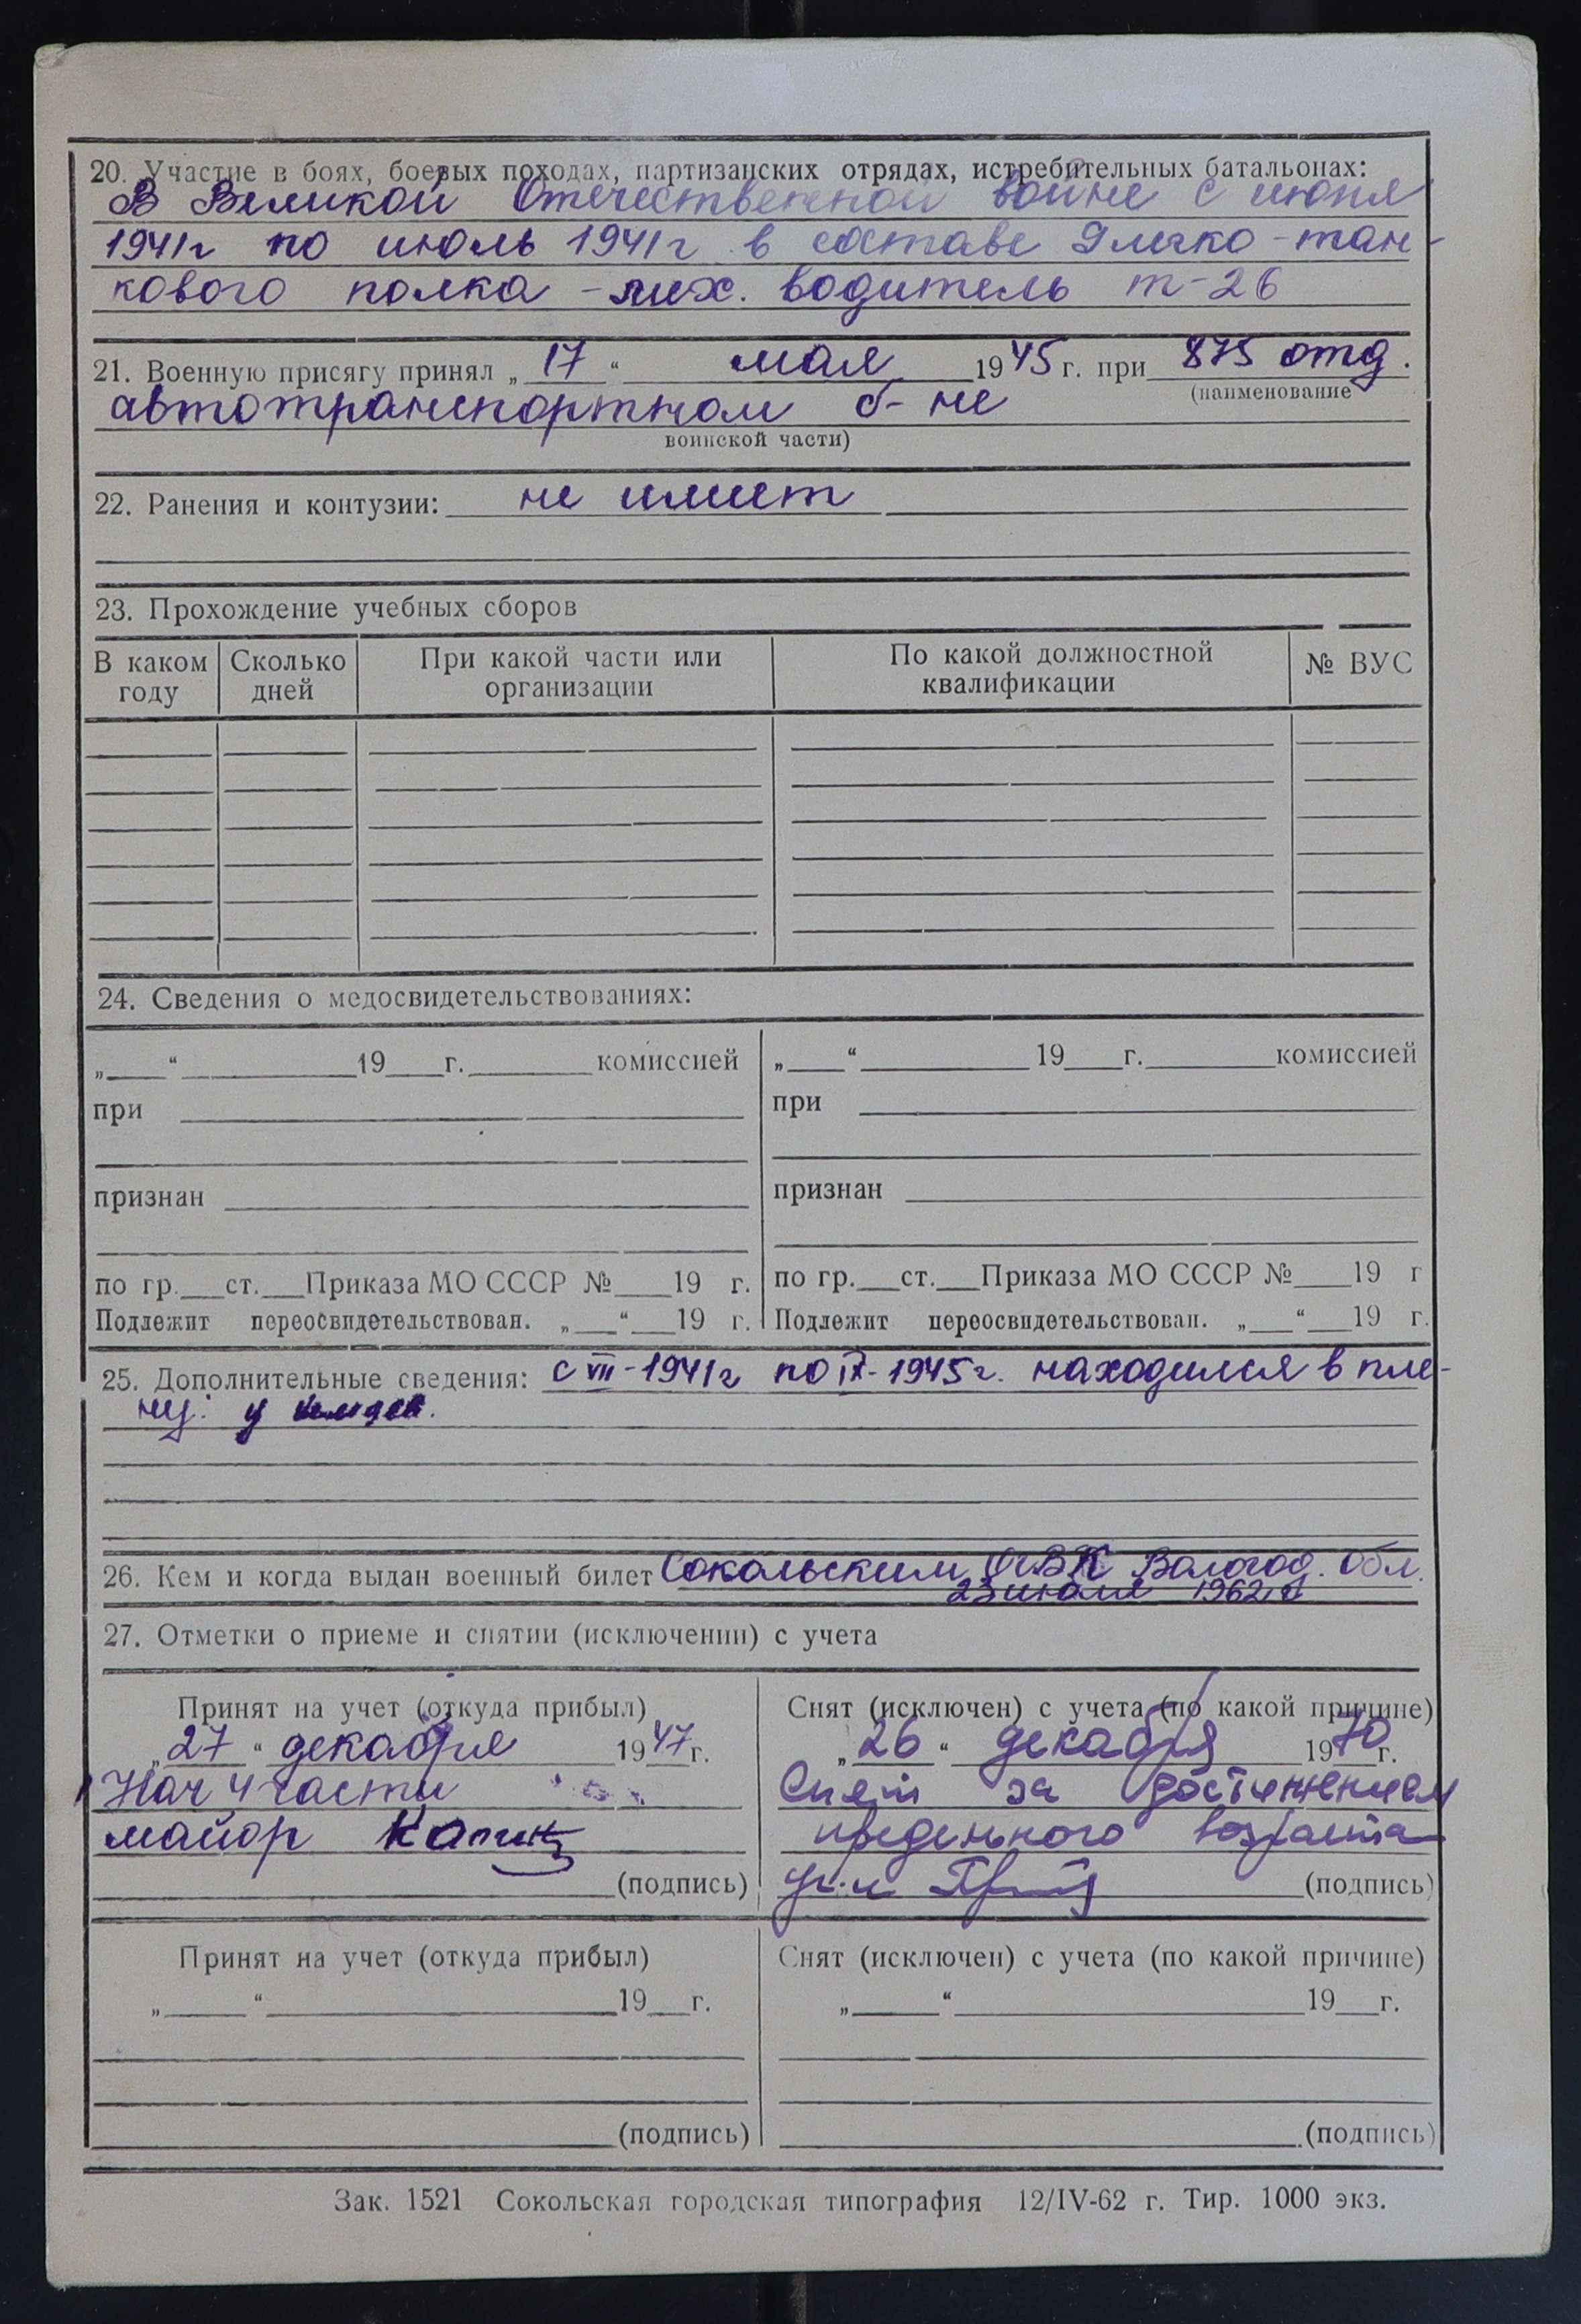 20. Участие в боях, боевых походах, партизанских отрядах, истребительных батальонах:
В Великой Отечественной войне с июня
1941г по июль 1941г в составе 9 легко-тан-
кового полка - мех. водитель т-26
21. Военную присягу принял „17“ мая 1945 г. при 875 отд.
(наименование
автотранспортном б-не
воинской части)
22. Ранения и контузии: не имеет
23. Прохождение учебных сборов
В каком году Сколько дней При какой части или организации По какой должностной квалификации № ВУС
24. Сведения о медосвидетельствованиях:
„ “ 19 г. комиссией „ “ 19 г. комиссией
при при
признан признан
по гр. ст. Приказа МО СССР № 19 г. по гр. ст. Приказа МО СССР № 19 г
Подлежит переосвидетельствован. „ “ 19 г. Подлежит переосвидетельствован. „ “ 19 г.
25. Дополнительные сведения: с VII-1941г по IX-1945г. находился в пле-
ну у
26. Кем и когда выдан военный билет Сокольским ОГВК Вологод. обл.
23 июля 1962 г
27. Отметки о приеме и снятии (исключении) с учета
Принят на учет (откуда прибыл) Снят (исключен) с учета (по какой причине)
„27“ декабря 1947 г. „26“ декабря 1970 г.
Нач 4 части Снят за достижением
майор предельного возраста
(подпись) (подпись)
Принят на учет (откуда прибыл) Снят (исключен) с учета (по какой причине)
„ “ 19 г. „ “ 19 г.
(подпись) (подпись)
Зак. 1521 Сокольская городская типография 12/IV-62 г. Тир. 1000 экз.